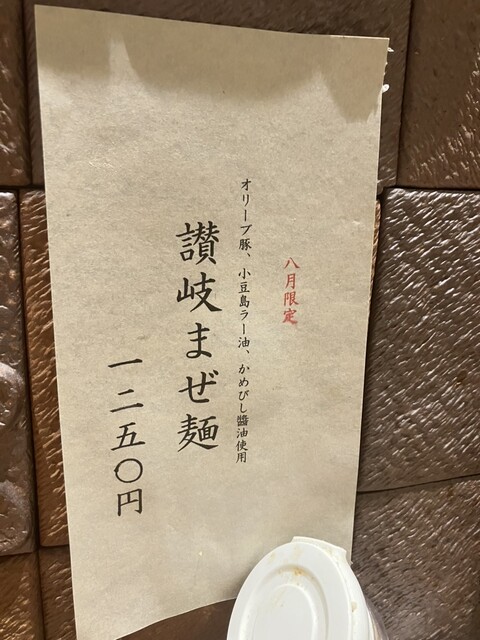 八月限定
オリーブ豚、小豆島ラー油、かめびし醬油使用
讃岐まぜ麺
一二五〇円